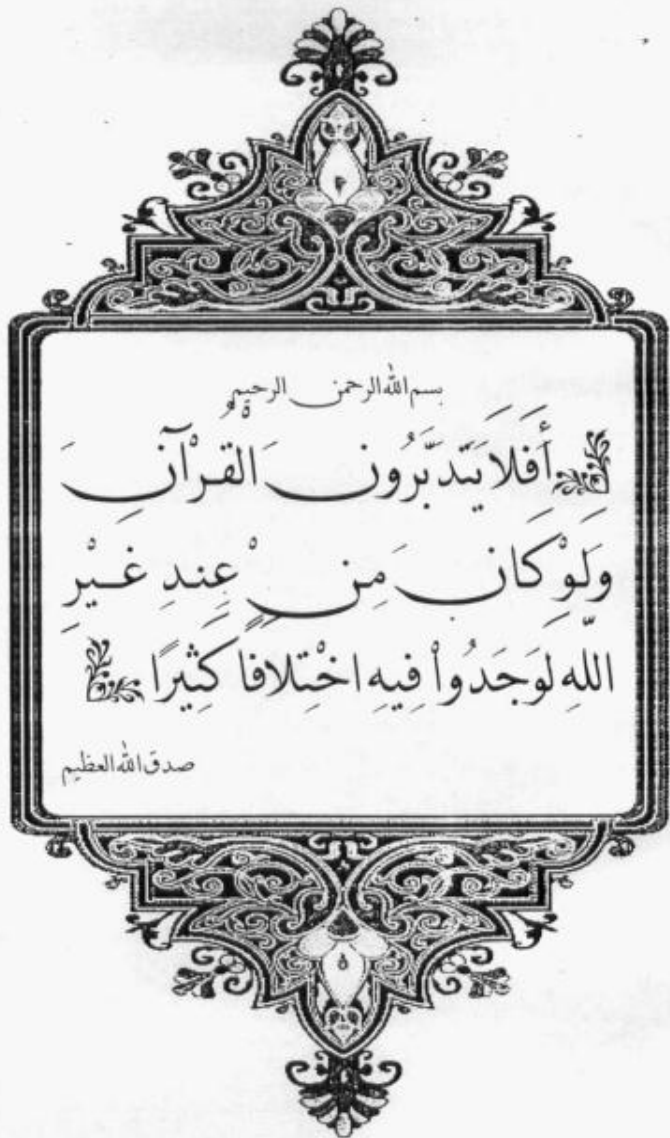 بسم الله الرحمن الرحيم
أَفَلَا يَتَدَبَّرُونَ الْقُرْآنَ
وَلَوْ كَانَ مِنْ عِندِ غَيْرِ
اللَّهِ لَوَجَدُوا فِيهِ اخْتِلَافًا كَثِيرًا
صدق الله العظيم